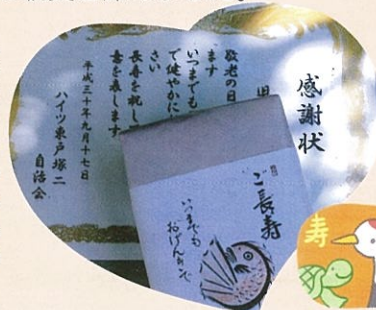 感謝状
敬老の日
ます
いつまでも
で健やかに
さい
長寿を祝し
意を表します
平成三十年九月十七日
ハイツ東戸塚二
自治会
ご長寿
いつまでも
おげんきで
寿